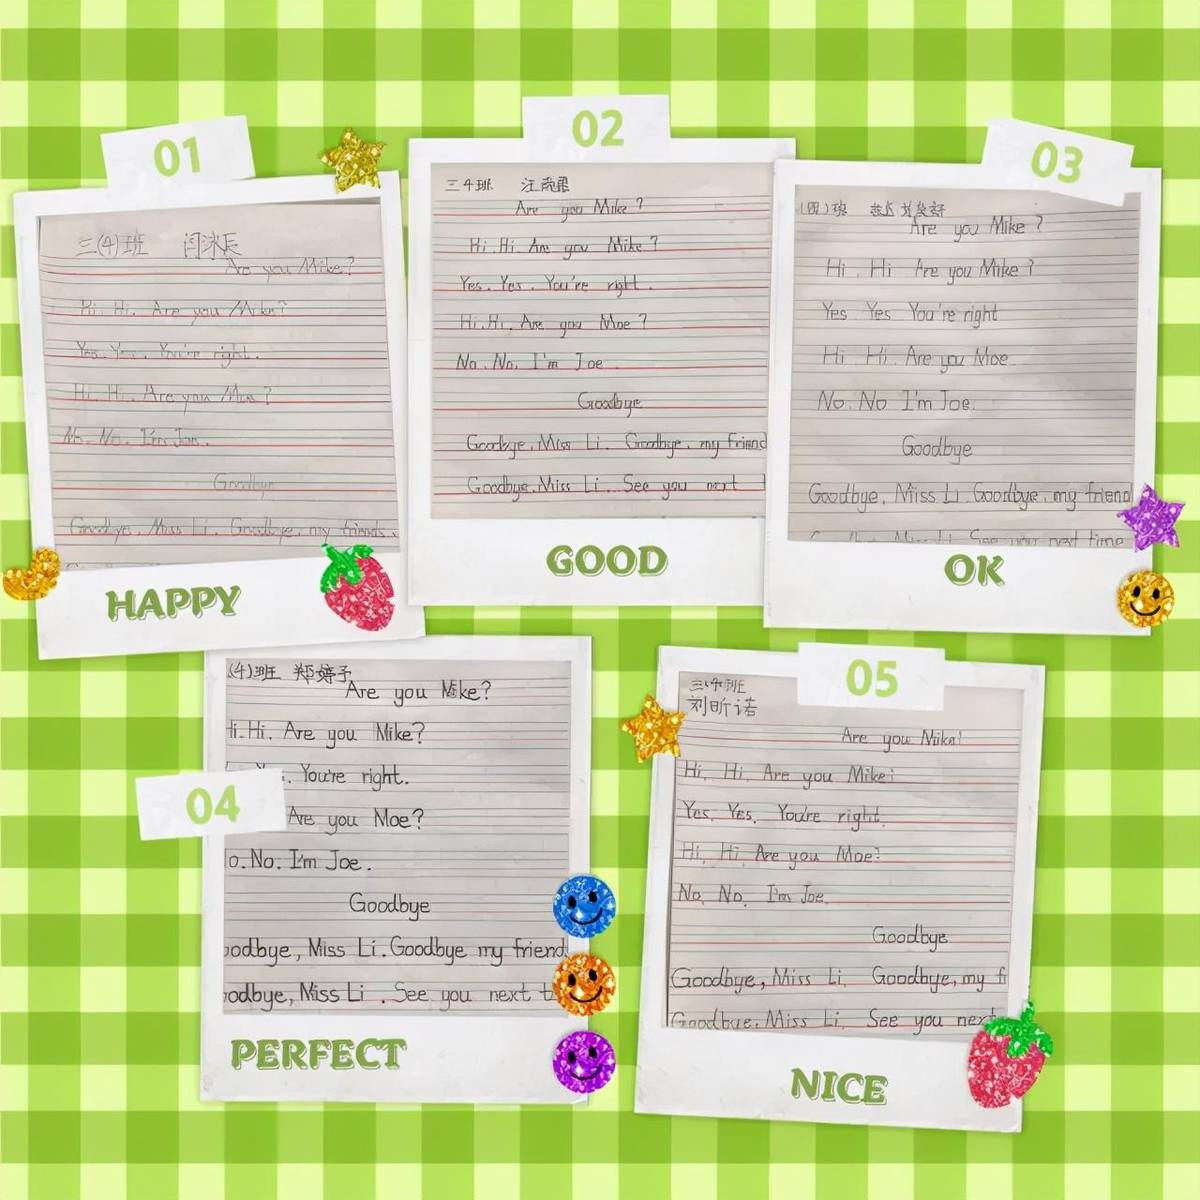 01
三(4)班 闫沐辰
Are you Mike?
Hi. Hi. Are you Mike?
Yes. Yes. You're right.
Hi. Hi. Are you
No. No. I'm
Goodbye
Goodbye, Miss Li. Goodbye, my friends.
HAPPY
02
三4班. 汪
Are you Mike?
Hi. Hi. Are you Mike?
Yes. Yes. You're right.
Hi. Hi. Are you Moe?
No. No. I'm Joe.
Goodbye
Goodbye, Miss Li. Goodbye, my friend
Goodbye, Miss Li. See you next t
GOOD
03
(四)班
Are you Mike?
Hi. Hi Are you Mike?
Yes Yes You're right
Hi. Hi. Are you Moe
No. No I'm Joe.
Goodbye
Goodbye, Miss Li. Goodbye, my friend
Miss Li See your next time
OK
04
(4)班 郑婷予
Are you Mike?
Hi. Hi. Are you Mike?
Yes. You're right.
Are you Moe?
o. No. I'm Joe.
Goodbye
oodbye, Miss Li. Goodbye my friend
oodbye, Miss Li. See you next t
PERFECT
05
三(4)班
刘昕诺
Are you Mike!
Hi, Hi, Are you Mike?
Yes, Yes, You're right.
Hi, Hi, Are you Moe?
No, No, I'm Joe.
Goodbye
Goodbye, Miss Li. Goodbye, my fr
Goodbye, Miss Li. See you next
NICE